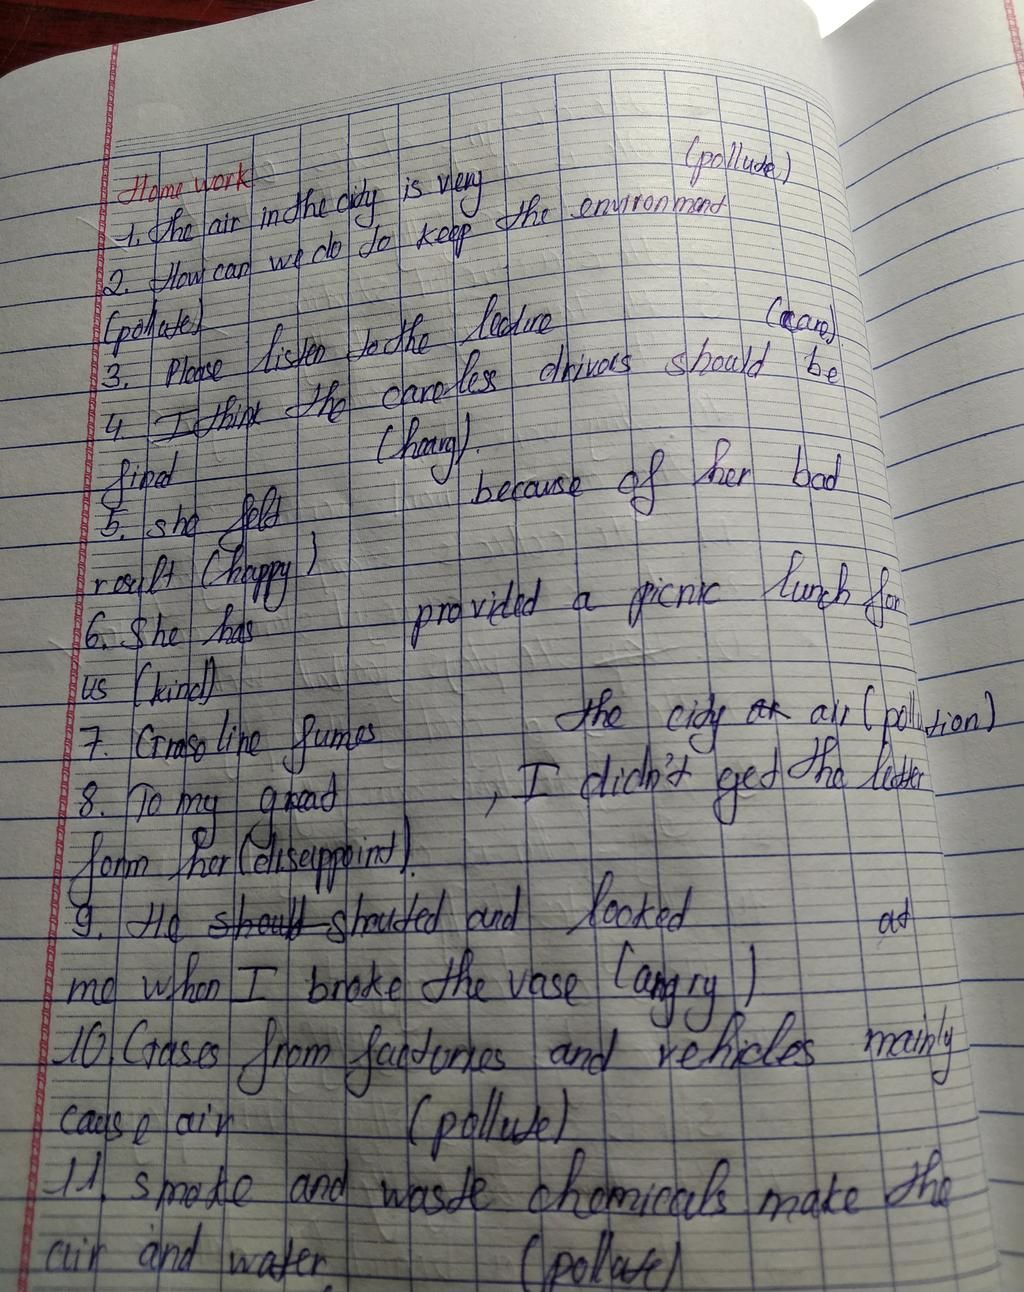 Home work
1. the air in the city is very (pollute)
2. How can we do to keep the environment
(pollute)
3. Please listen to the lecture (care)
4 I think the careless drivers should be
fined (heavy).
5. she felt because of her bad
result (happy)
6. She has provided a picnic lunch for
us (kind)
7. Grasoline fumes the city air (pollution)
8. To my great , I didn't get the letter
form her (diseappoint).
9. He shouted and looked at
me when I broke the vase (angry)
10. Gases from factories and vehicles mainly
cause air (pollute)
11. smoke and waste chemicals make the
air and water (pollute)